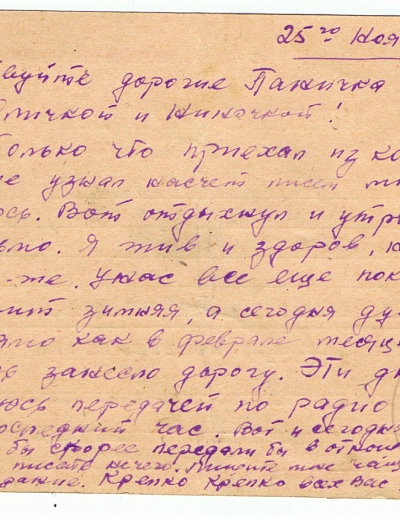 25го Ноя
вуйте дорогие Папичка
личкой и Ниночкой!
Только что приехал из ко
не узнал насчет писем
ось. Вот отдыхнул и утр
ьмо. Я жив и здоров,
же. У нас все еще пок
зимняя, а сегодня ду
ямо как в феврале месяц
занесло дорогу. Эти дн
юсь передачей по радио
оследний час. Вот и сегодня
бы скорее передали бы в
писать нечего. Пишите мне чащ
дание. Крепко Крепко всех Вас